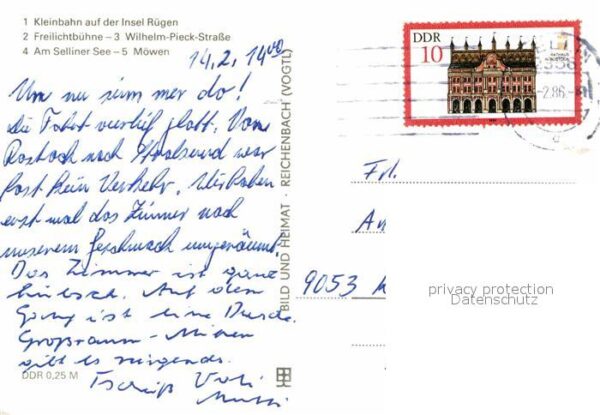 1 Kleinbahn auf der Insel Rügen
2 Freilichtbühne – 3 Wilhelm-Pieck-Straße
4 Am Selliner See – 5 Möwen
14.2. 14⁰⁰
Um nu sim mer do!
Die Fahrt verlief glatt. Von
Rostock nach Stralsund war
fast kein Verkehr. Wir haben
erst mal das Zimmer nach
unserem Geschmack umgeräumt.
Das Zimmer ist ganz
hübsch. Auf dem
Gang ist eine Dusche.
Großraum-
gibt es nirgends.
Tschüß
DDR 0,25 M
BILD UND HEIMAT · REICHENBACH (VOGTL)
DDR
10
2.86.
Frl.
9053
privacy protection
Datenschutz